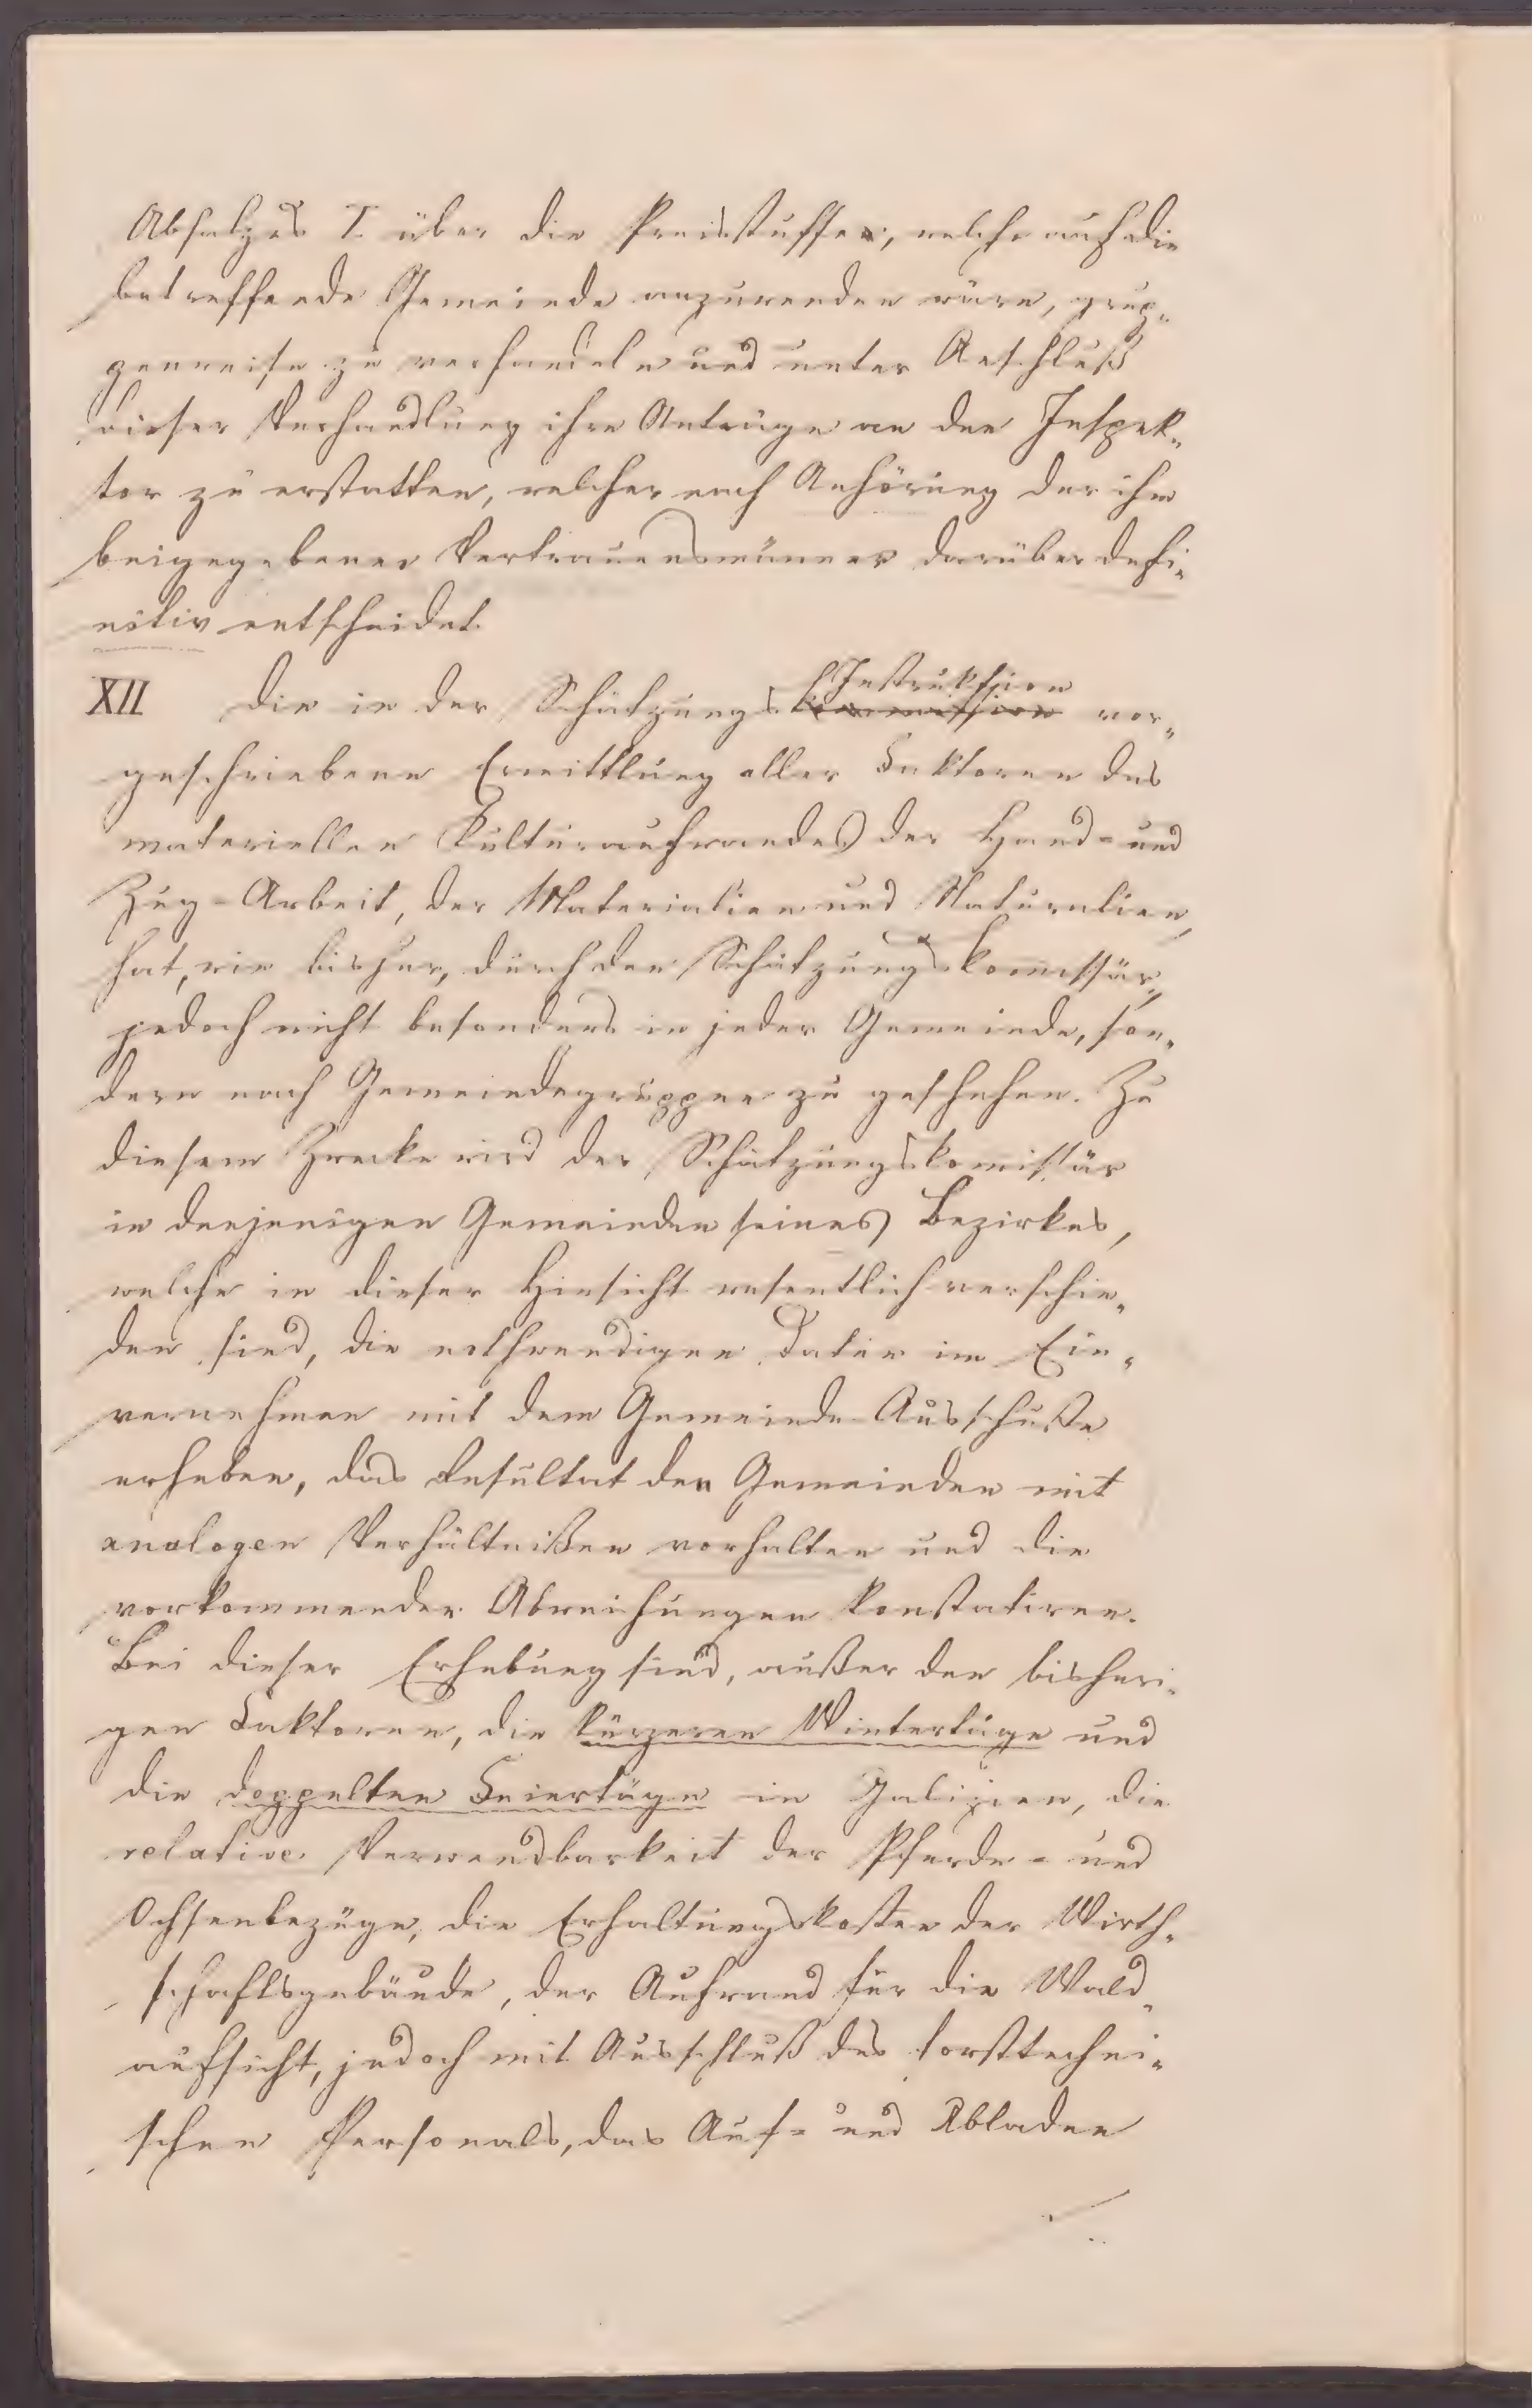 Absatzes I. über die Preisstuffen, welche auf die
betreffende Gemeinde anzuwenden wäre, grup-
penweise zu verhandeln und unter Anschluß
dieser Verhandlung ihre Anträge an den Inspek-
tor zu erstatten, welcher nach Anhörung der ihm
beigegebenen Vertrauensmänner darüber defi-
nitiv entscheidet.
XII Die in der Schätzungs Instruktion kommission vor-
geschriebene Ermittlung aller Faktoren des
materiellen Kulturaufwandes der Hand- und
Zug-Arbeit, der Materialien und Naturalien,
hat, wie bisher, durch den Schätzungskommissär,
jedoch nicht besonders in jeder Gemeinde, son-
dern nach Gemeindegruppen zu geschehen. Zu
diesem Zwecke wird der Schätzungskomissär
in denjenigen Gemeinden seines Bezirkes,
welche in dieser Hinsicht wesentlich verschie-
den sind, die nothwendigen Daten im Ein-
vernehmen mit dem Gemeinde-Ausschuße
erheben, das Resultat den Gemeinden mit
analogen Verhältnißen vorhalten und die
vorkommenden Abweichungen konstatiren.
Bei dieser Erhebung sind, außer den bisheri-
gen Faktoren, die kürzeren Wintertäge und
die doppelten Feiertäge in Galizien, die
relative Verwendbarkeit der Pferde- und
Ochsenbezüge, die Erhaltungskosten der Wirth-
schaftsgebäude, der Aufwand für die Wald-
aufsicht, jedoch mit Ausschluß des forsttechni-
schen Personals, das Auf- und Abladen